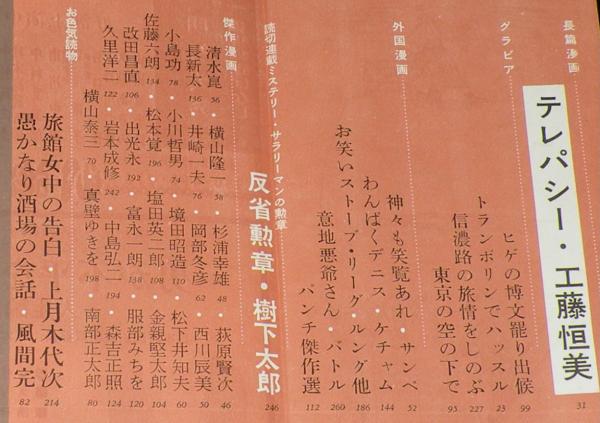 長篇漫画
テレパシー・工藤恒美 31
グラビア
ヒゲの博文罷り出候 99
トランポリンでハッスル 23
信濃路の旅情をしのぶ 227
東京の空の下で 95
外国漫画
神々も笑覧あれ・サンペ 52
わんぱくデニス・ケチャム 144
お笑いストーブ・リーグ・ルング他 186
意地悪爺さん・バトル 260
パンチ傑作選 112
読切連載ミステリー・サラリーマンの勲章
反省勲章・樹下太郎 246
傑作漫画
清水崑 56・横山隆一 58・杉浦幸雄 48・荻原賢次 46
長新太 136・井崎一夫 76・岡部冬彦 62・西川辰美 50
小島功 78・小川哲男 74・境田昭造 110・松下井知夫 60
佐藤六朗 134・松本覚 196・塩田英二郎 108・金親堅太郎 104
改田昌直 106・出光永 192・富永一朗 138・服部みちを 120
久里洋二 122・岩本成修 242・中島弘二 194・森吉正照 124
横山泰三 70・真壁ゆきを 198・南部正太郎 80
お色気読物
旅館女中の告白・上月木代次 214
愚かなり酒場の会話・風間完 82